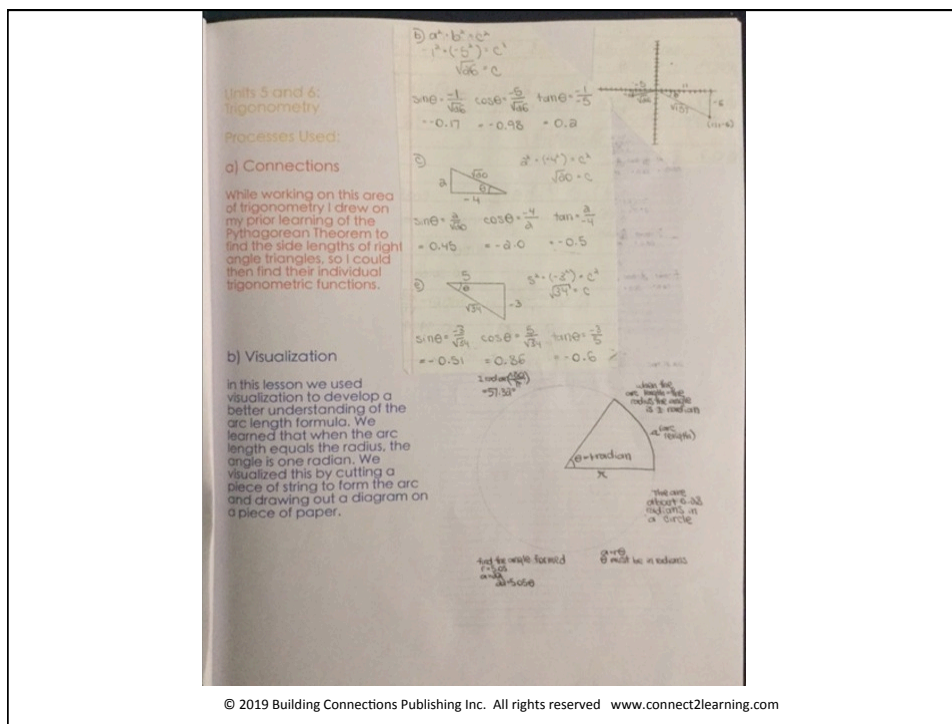 Units 5 and 6:
Trigonometry
Processes Used:
a) Connections
While working on this area
of trigonometry I drew on
my prior learning of the
Pythagorean Theorem to
find the side lengths of right
angle triangles, so I could
then find their individual
trigonometric functions.
b) Visualization
In this lesson we used
visualization to develop a
better understanding of the
arc length formula. We
learned that when the arc
length equals the radius, the
angle is one radian. We
visualized this by cutting a
piece of string to form the arc
and drawing out a diagram on
a piece of paper.
b) a² + b² = c²
-1² + (-5²) = c²
√26 = c
sinθ = -1/√26 cosθ = -5/√26 tanθ = -1/-5
= -0.17 = -0.98 = 0.2
c)
2² + (-4²) = c²
√20 = c
2
√20
θ
-4
sinθ = 2/√20 cosθ = -4/2 tan = 2/-4
= 0.45 = -2.0 = -0.5
e)
5
θ
√34
-3
5² + (-3²) = c²
√34 = c
sinθ = -3/√34 cosθ = 5/√34 tanθ = -3/5
= -0.51 = 0.86 = -0.6
1 radian
when the
arc length = the
radius the angle
is 1 radian
a (arc
length)
θ = 1 radian
about 6.28
radians in
a circle
find the angle formed
a = rθ
θ must be in radians
© 2019 Building Connections Publishing Inc. All rights reserved www.connect2learning.com